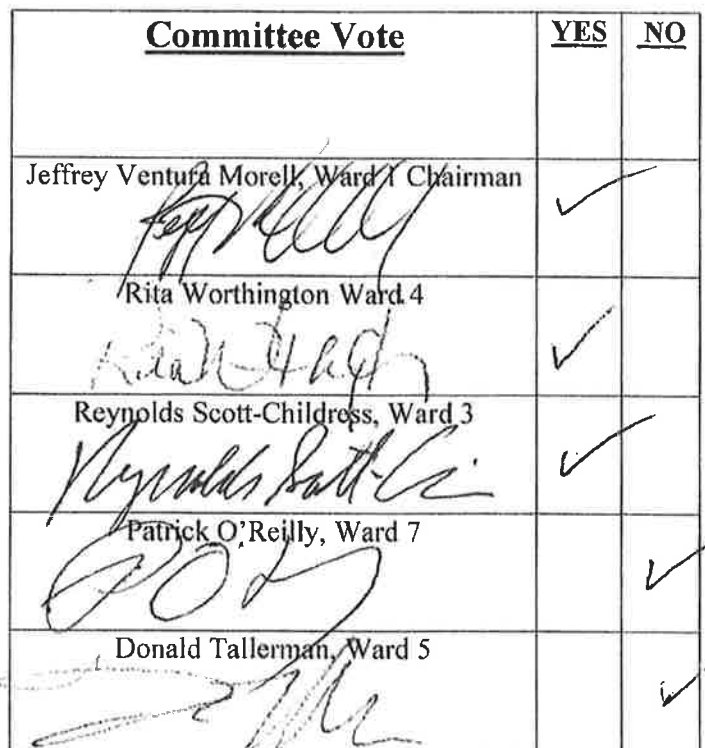 Committee Vote YES NO
Jeffrey Ventura Morell, Ward 1 Chairman ✓
Rita Worthington Ward 4
✓
Reynolds Scott-Childress, Ward 3
Reynolds Scott-Ci ✓
Patrick O'Reilly, Ward 7
✓
Donald Tallerman, Ward 5
✓